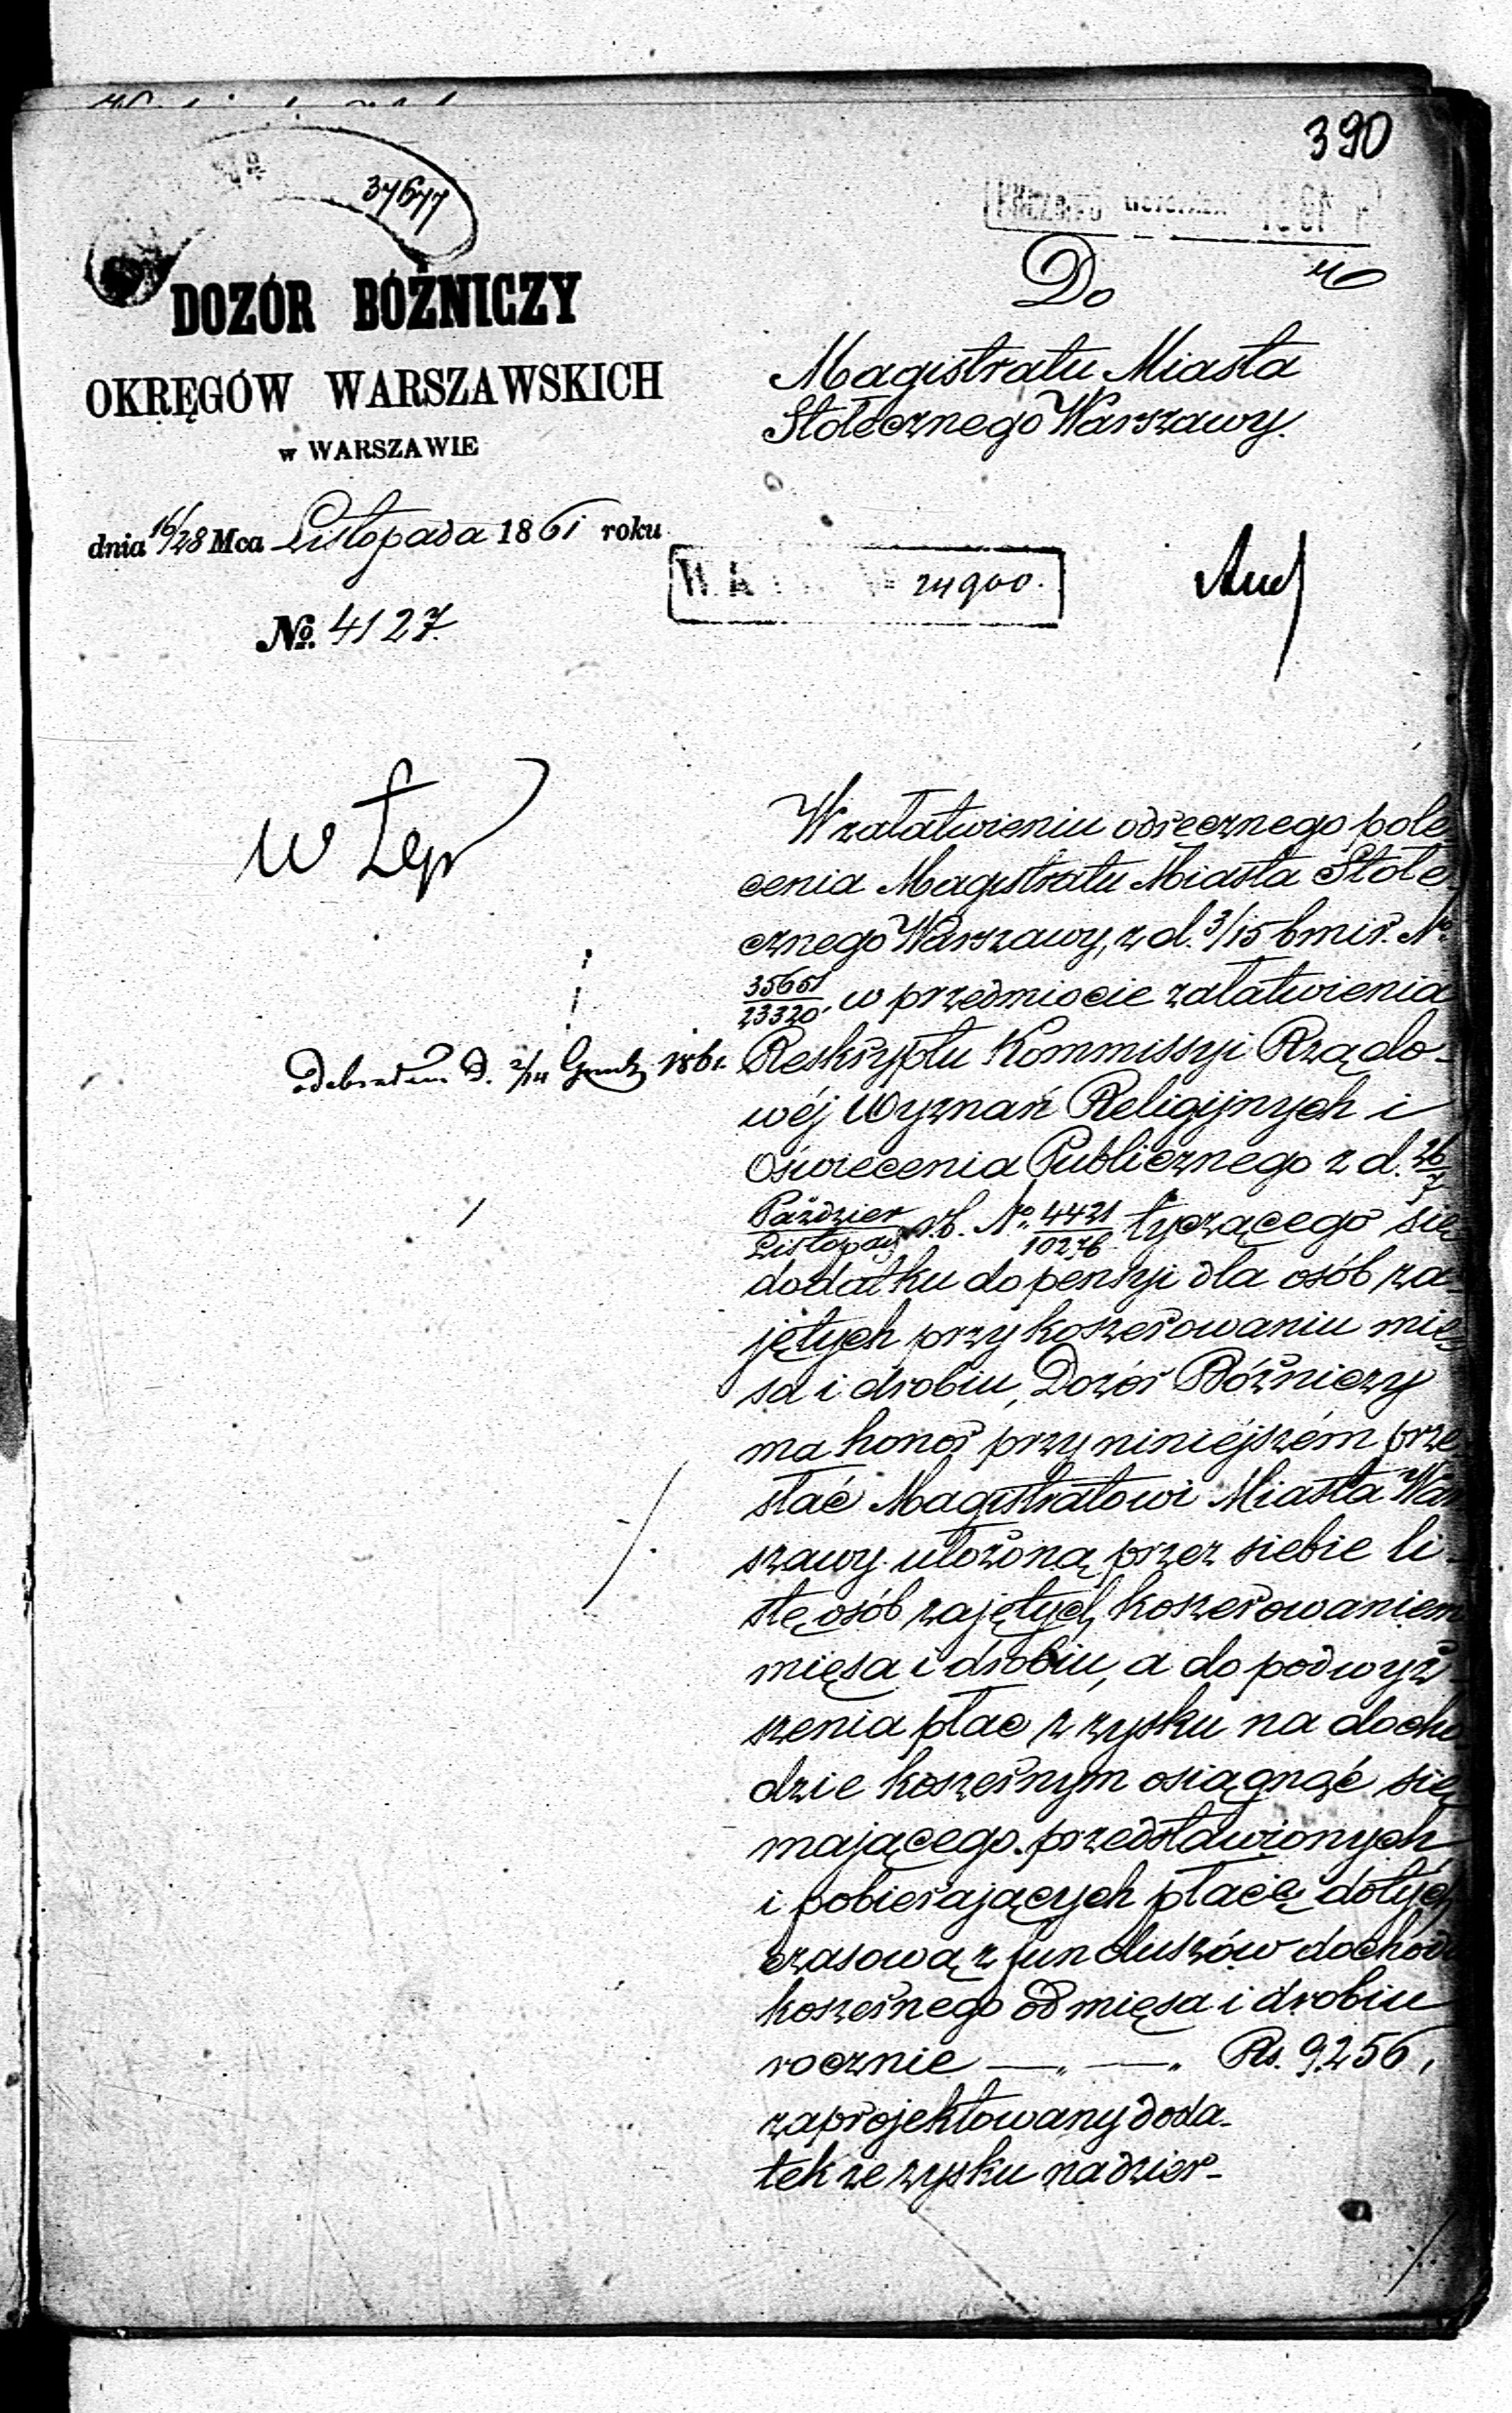 390
37677
DOZÓR BÓŻNICZY
OKRĘGÓW WARSZAWSKICH
w WARSZAWIE
dnia 16/28 Mca Listopada 1861 roku
No. 4127.
Do
Magistratu Miasta
Stołecznego Warszawy.
24900.
Odebrałem d. 2/14 Grud. 1861.
W załatwieniu odręcznego pole-
cenia Magistratu Miasta Stołe-
cznego Warszawy, z d. 3/15 b m i r. No.
35651/23320, w przedmiocie załatwienia
Reskryptu Kommissyi Rządo-
wéj Wyznań Religijnych i
Oświecenia Publicznego z d. 26/7
Paździer/Listopad r.b. No. 4421/10276 tyczącego się
dodatku do pensyi dla osób za-
jętych przy koszerowaniu mię-
sa i drobiu, Dozór Bóżniczy
ma honor przy niniéjszém prze-
słać Magistratowi Miasta War-
szawy ułożoną przez siebie li-
stę osób zajętych koszerowaniem
mięsa i drobiu, a do podwyż-
szenia płac z zysku na docho-
dzie koszernym osiągnąć się
mającego przedstawionych
i pobierających płacę dotych
czasową z funduszów dochodu
koszernego od mięsa i drobiu
rocznie —„ —„ Rs. 9256,
zaprojektowany doda-
tek ze zysku na dzier-